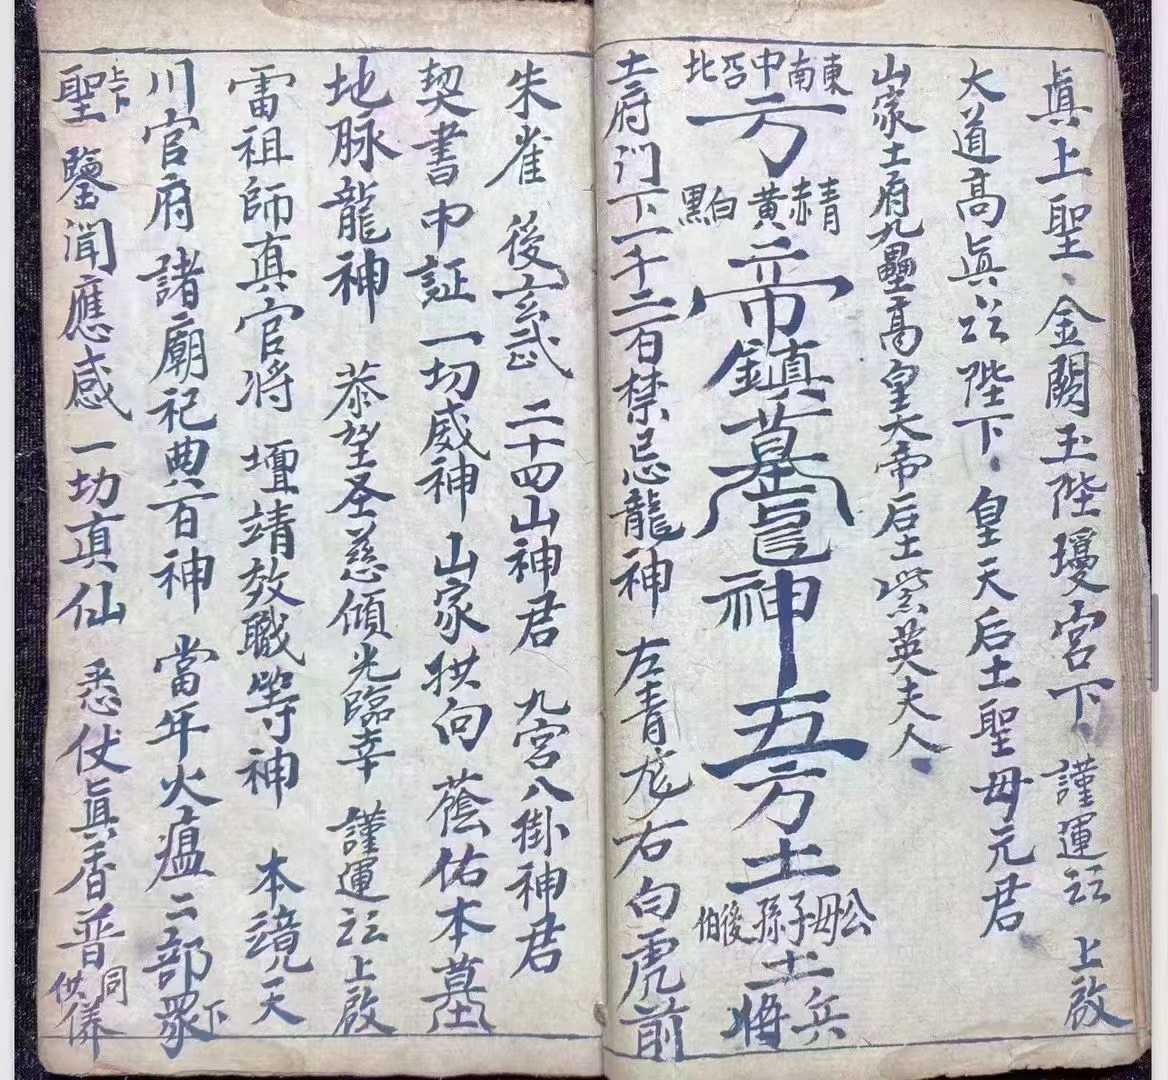 真上聖、金闕玉陛瓊宮下、謹運云云 上啟
大道高眞云云陛下、皇天后土聖母元君
山家土府九壘高皇大帝后土紫英夫人、
東南中西北方青赤黃白黑帝鎮墓神五方土公母子孫後伯土兵將
土府门下一千二百禁忌龍神 左青龙右白虎前
朱雀 後玄武 二十四山神君 九宮八掛神君
契書中証一切威神山家拱向 蔭佑本墓
地脉龍神 恭望圣慈傾光臨幸 謹運云云上啟
雷祖師真官将 壇靖效職等神 本境天
川官府諸廟祀典百神 當年火瘟二部眾
上下聖 鑒聞應感 一切真仙 悉仗眞香普同供養下